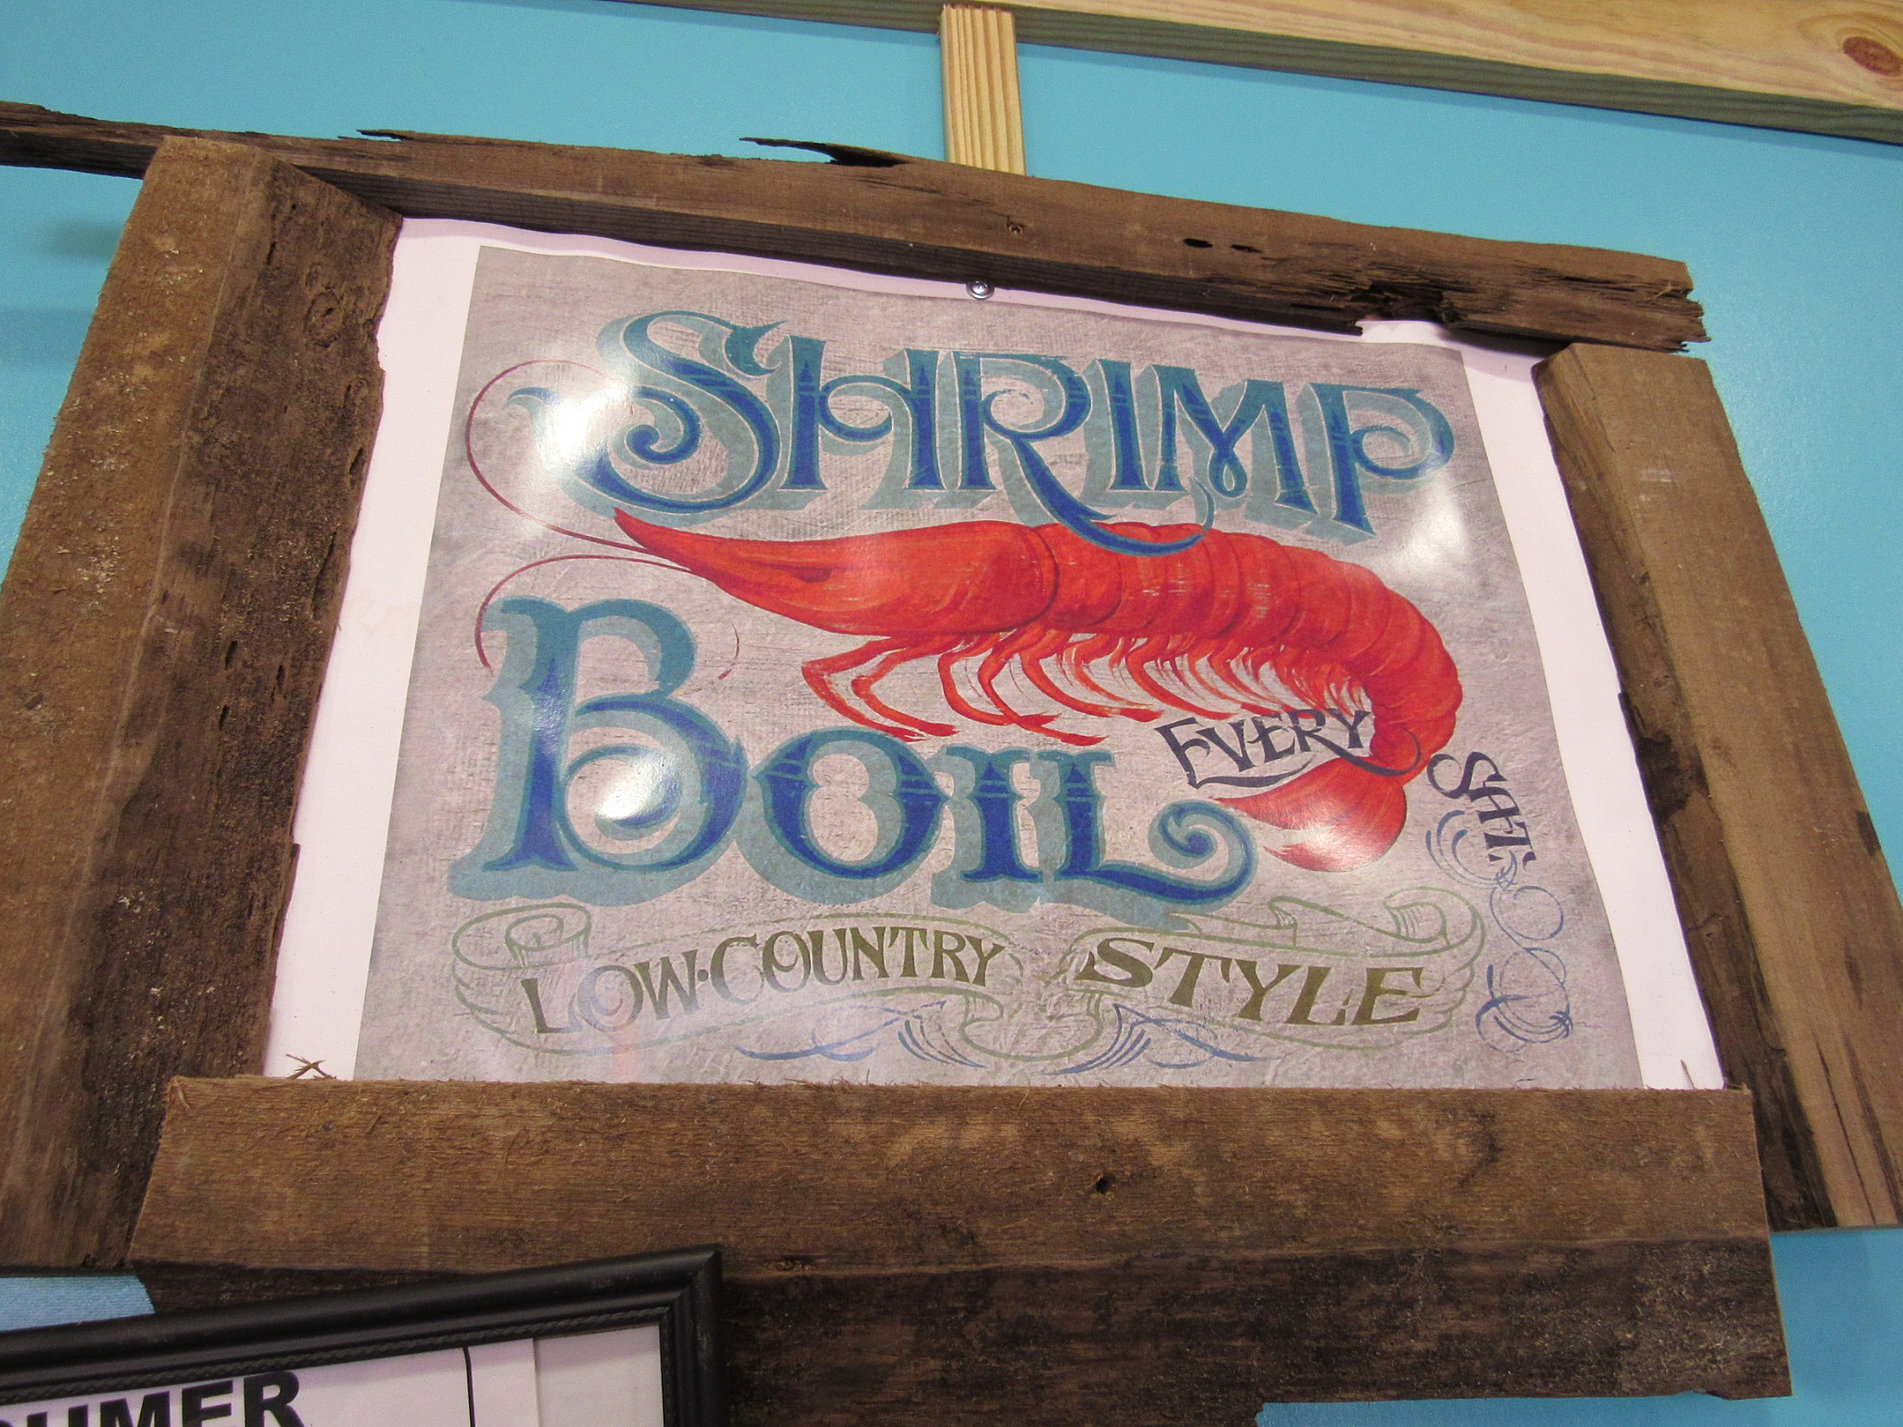 SHRIMP
BOIL
EVERY
SAT.
LOW·COUNTRY STYLE